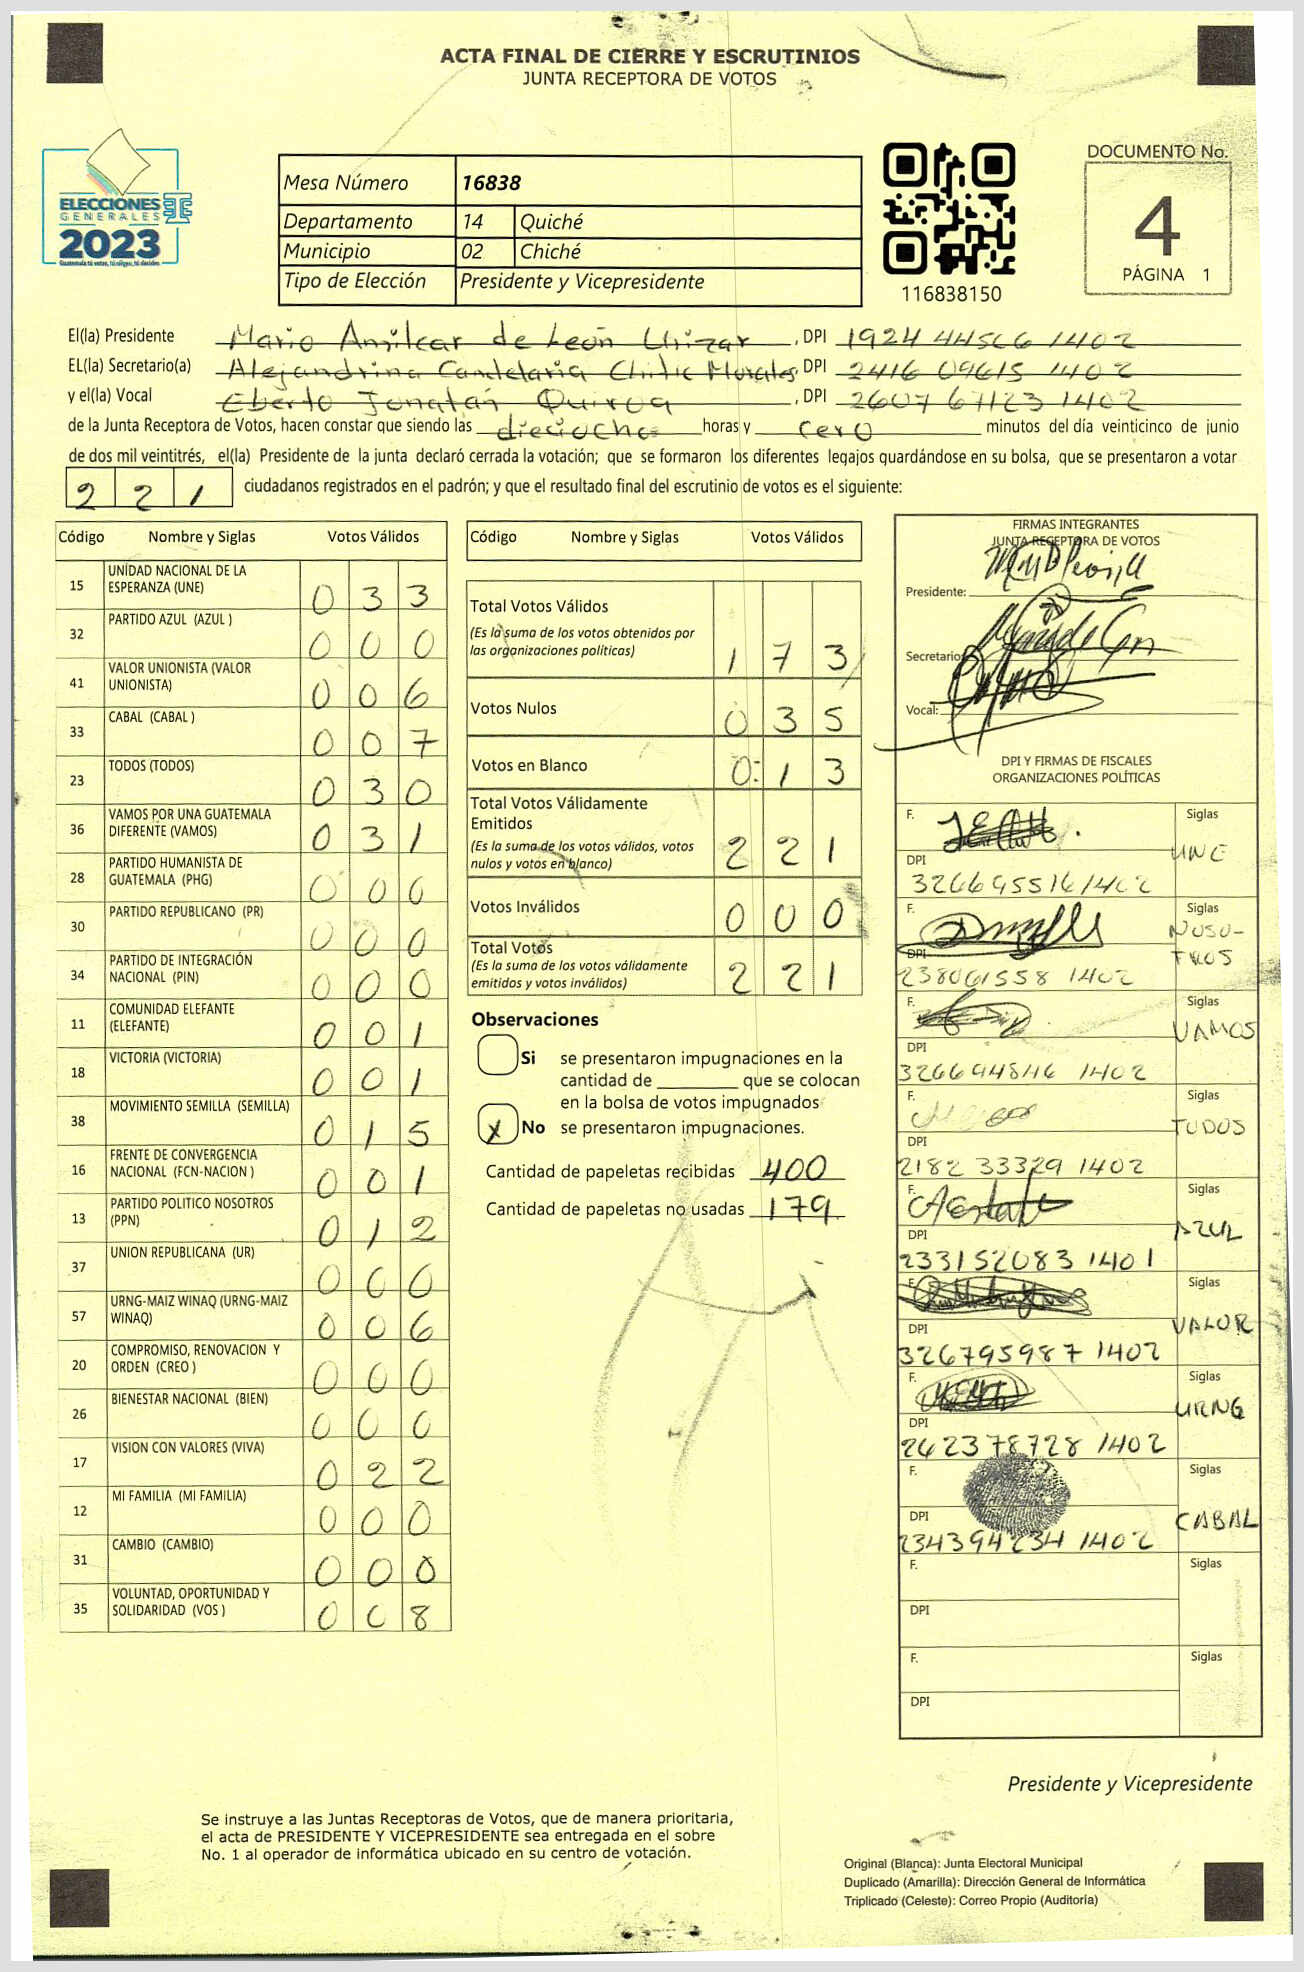 ACTA FINAL DE CIERRE Y ESCRUTINIOS
JUNTA RECEPTORA DE VOTOS
ELECCIONES
GENERALES
2023
Guatemala tú votas, tú eliges, tú decides
Mesa Número 16838
Departamento 14 Quiché
Municipio 02 Chiché
Tipo de Elección Presidente y Vicepresidente
116838150
DOCUMENTO No.
4
PÁGINA 1
El(la) Presidente Mario Amilcar de León, DPI 1924 44506 1402
EL(la) Secretario(a) Alejandrina Candelaria Chitic Morales, DPI 2416 09615 1402
y el(la) Vocal Eberto Jonatán Quiroa, DPI 2607 67123 1402
de la Junta Receptora de Votos, hacen constar que siendo las dieciocho horas y cero minutos del día veinticinco de junio
de dos mil veintitrés, el(la) Presidente de la junta declaró cerrada la votación; que se formaron los diferentes legajos guardándose en su bolsa, que se presentaron a votar
2 2 1 ciudadanos registrados en el padrón; y que el resultado final del escrutinio de votos es el siguiente:
Código Nombre y Siglas Votos Válidos
15 UNIDAD NACIONAL DE LA ESPERANZA (UNE) 0 3 3
32 PARTIDO AZUL (AZUL ) 0 0 0
41 VALOR UNIONISTA (VALOR UNIONISTA) 0 0 6
33 CABAL (CABAL ) 0 0 7
23 TODOS (TODOS) 0 3 0
36 VAMOS POR UNA GUATEMALA DIFERENTE (VAMOS) 0 3 1
28 PARTIDO HUMANISTA DE GUATEMALA (PHG) 0 0 0
30 PARTIDO REPUBLICANO (PR) 0 0 0
34 PARTIDO DE INTEGRACIÓN NACIONAL (PIN) 0 0 0
11 COMUNIDAD ELEFANTE (ELEFANTE) 0 0 1
18 VICTORIA (VICTORIA) 0 0 1
38 MOVIMIENTO SEMILLA (SEMILLA) 0 1 5
16 FRENTE DE CONVERGENCIA NACIONAL (FCN-NACION ) 0 0 1
13 PARTIDO POLITICO NOSOTROS (PPN) 0 1 2
37 UNION REPUBLICANA (UR) 0 0 0
57 URNG-MAIZ WINAQ (URNG-MAIZ WINAQ) 0 0 6
20 COMPROMISO, RENOVACION Y ORDEN (CREO ) 0 0 0
26 BIENESTAR NACIONAL (BIEN) 0 0 0
17 VISION CON VALORES (VIVA) 0 2 2
12 MI FAMILIA (MI FAMILIA) 0 0 0
31 CAMBIO (CAMBIO) 0 0 0
35 VOLUNTAD, OPORTUNIDAD Y SOLIDARIDAD (VOS ) 0 0 8
Código Nombre y Siglas Votos Válidos
Total Votos Válidos 1 7 3
(Es la suma de los votos obtenidos por
las organizaciones políticas)
Votos Nulos 0 3 5
Votos en Blanco 0 1 3
Total Votos Válidamente
Emitidos 2 2 1
(Es la suma de los votos válidos, votos
nulos y votos en blanco)
Votos Inválidos 0 0 0
Total Votos 2 2 1
(Es la suma de los votos válidamente
emitidos y votos inválidos)
Observaciones
Si se presentaron impugnaciones en la
cantidad de ________ que se colocan
en la bolsa de votos impugnados
X No se presentaron impugnaciones.
Cantidad de papeletas recibidas 400
Cantidad de papeletas no usadas 179
FIRMAS INTEGRANTES
JUNTA RECEPTORA DE VOTOS
Presidente:
Secretario
Vocal:
DPI Y FIRMAS DE FISCALES
ORGANIZACIONES POLÍTICAS
F. Siglas UNE
DPI
326695516 1402
F. Siglas NOSO-
TROS
DPI
238061558 1402
F. Siglas VAMOS
DPI
326694846 1402
F. Siglas TODOS
DPI
2182 33329 1402
F. Siglas AZUL
DPI
233152083 1401
F. Siglas VALOR
DPI
326795987 1402
F. Siglas URNG
DPI
262378728 1402
F. Siglas CABAL
DPI
234394234 1402
F. Siglas
DPI
F. Siglas
DPI
Presidente y Vicepresidente
Se instruye a las Juntas Receptoras de Votos, que de manera prioritaria,
el acta de PRESIDENTE Y VICEPRESIDENTE sea entregada en el sobre
No. 1 al operador de informática ubicado en su centro de votación.
Original (Blanca): Junta Electoral Municipal
Duplicado (Amarilla): Dirección General de Informática
Triplicado (Celeste): Correo Propio (Auditoría)